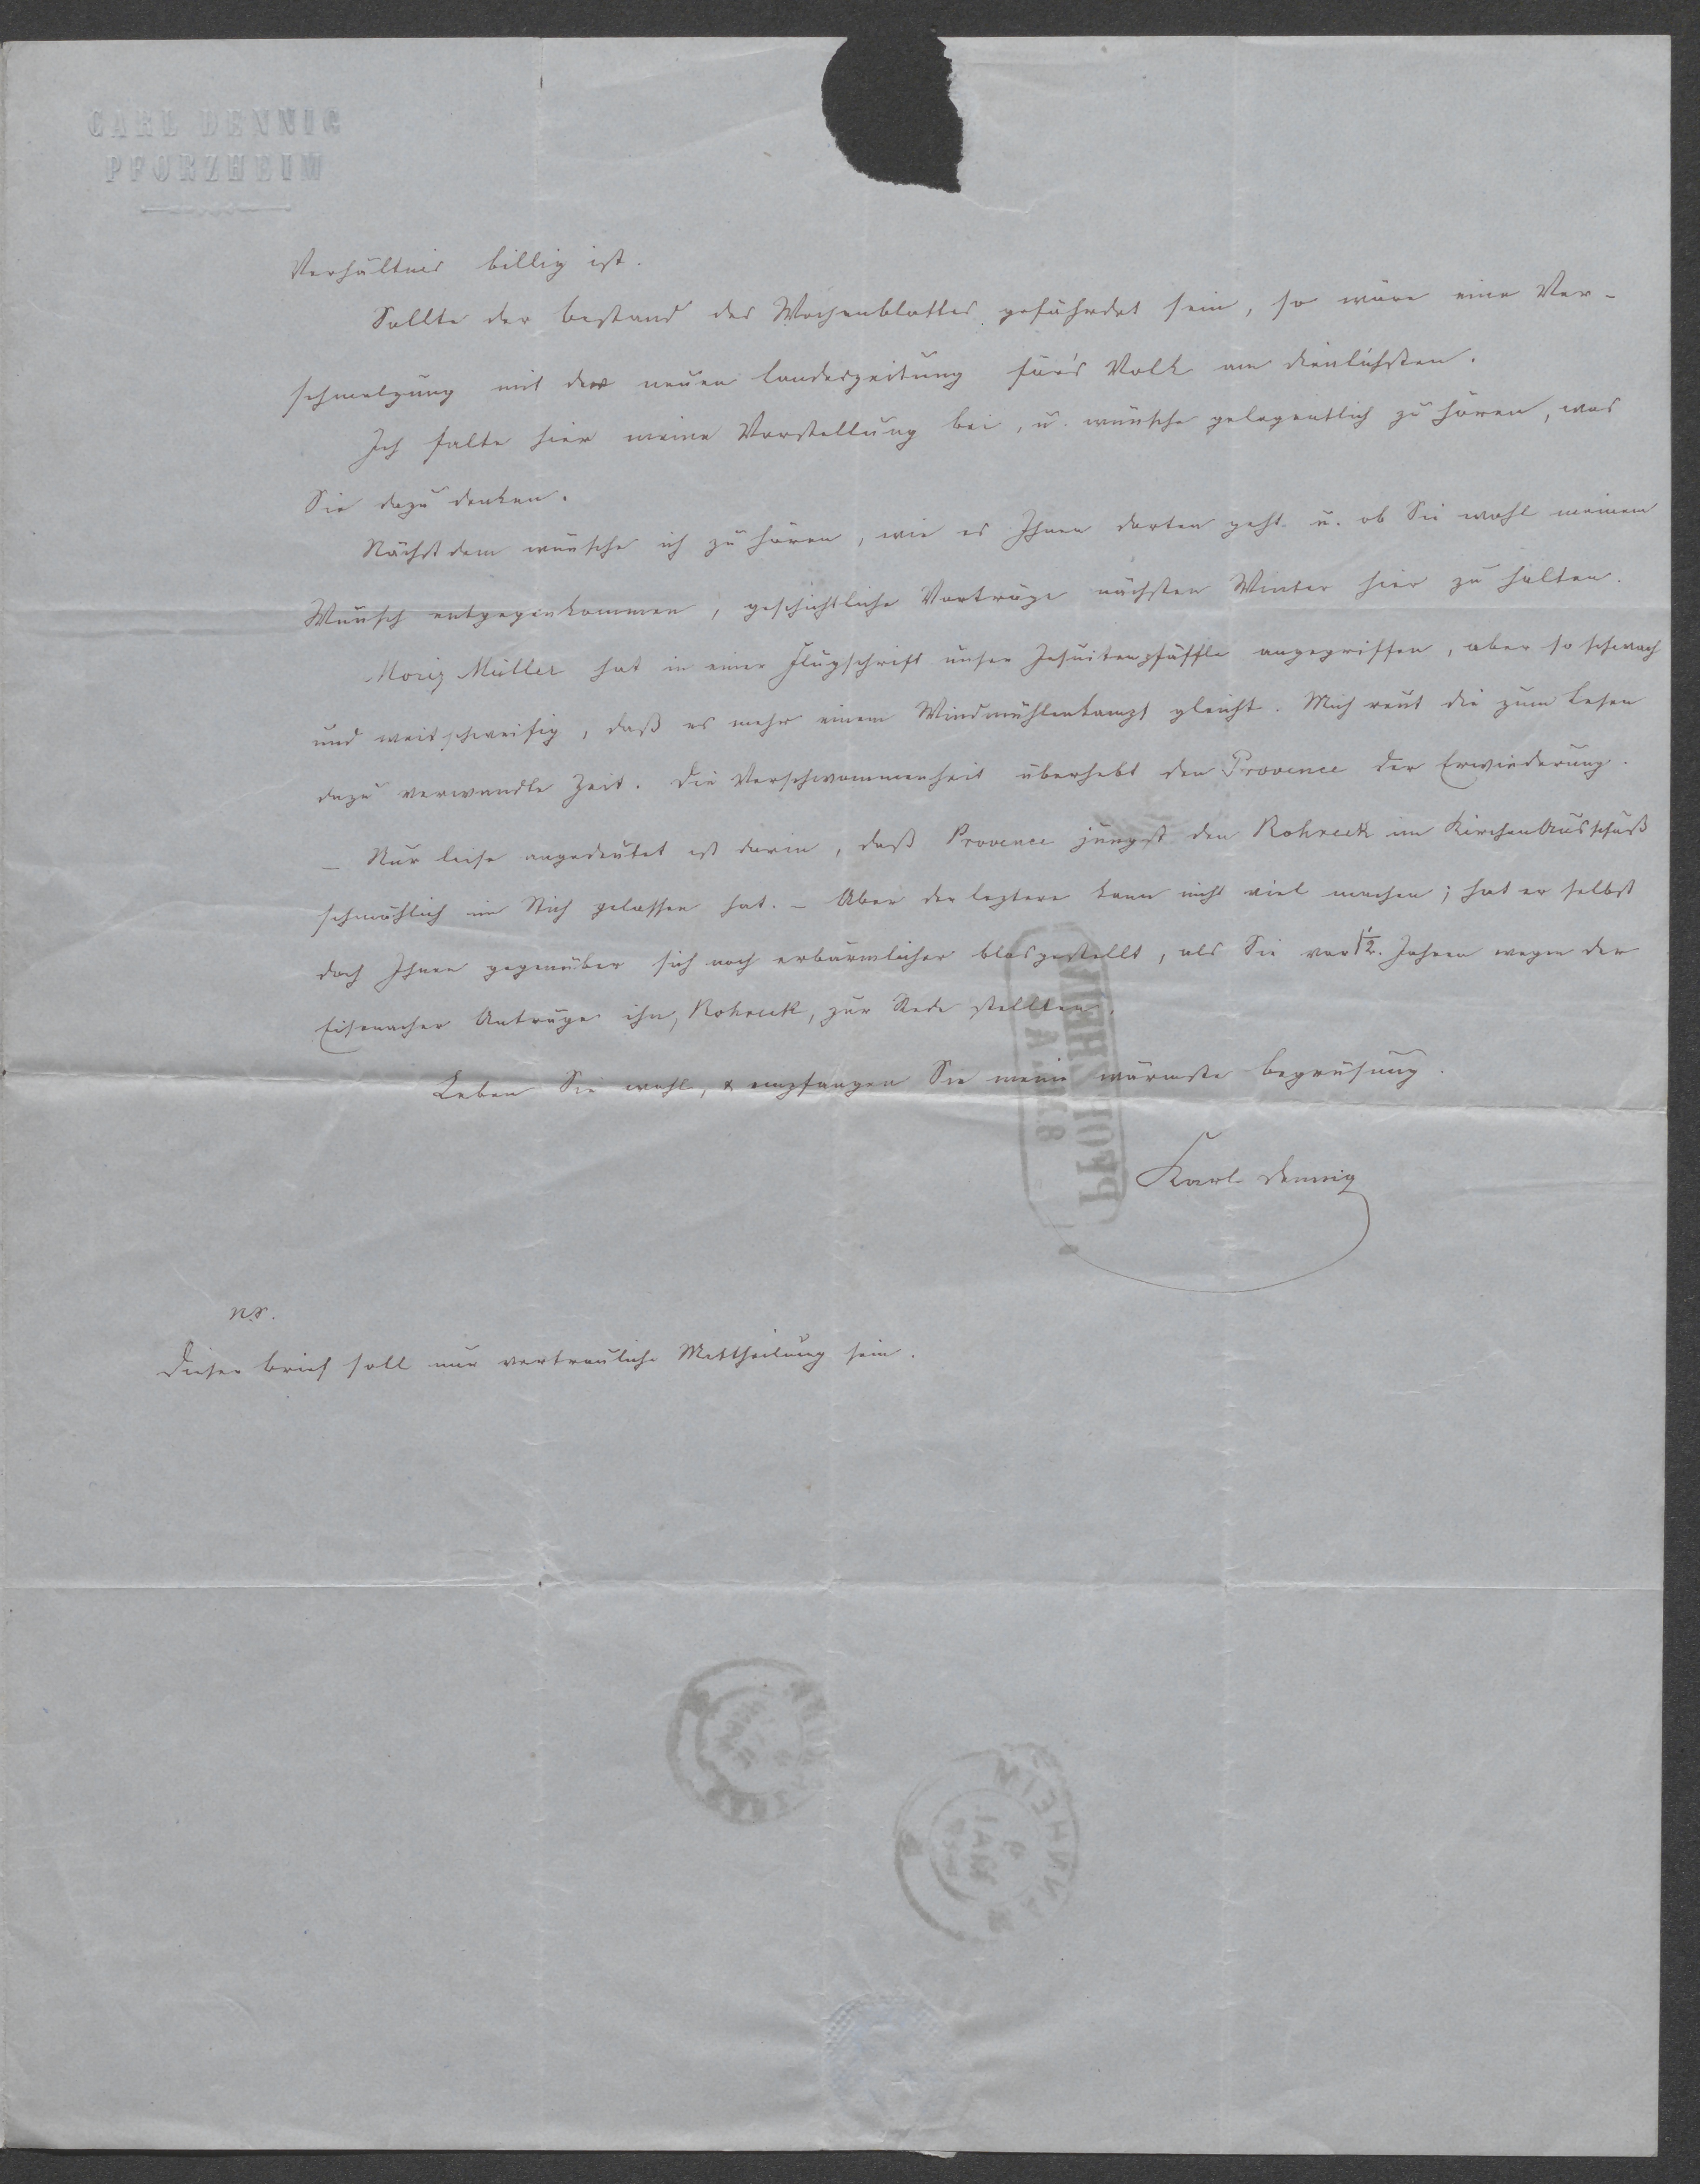 CARL DENNIG
PFORZHEIM
Verhältnis billig ist.
Sollte der Bestand des Wochenblattes gefährdet sein, so wäre eine Ver-
schmelzung mit der neuen Landeszeitung für's Volk am dienlichsten.
Ich falte hier meine Vorstellung bei, u. wünsche gelegentlich zu hören, was
Sie dazu denken.
Nächstdem wünsche ich zu hören, wie es Ihnen dorten geht u. ob Sie wohl meinem
Wunsch entgegenkommen, geschichtliche Vorträge nächsten Winter hier zu halten.
Moriz Müller hat in einer Flugschrift unser Jesuitenpfäffle angegriffen, aber so schwach
und weitschweifig, daß es mehr einem Windmühlenkampf gleicht. Mich reut die zum Lesen
dazu verwandte Zeit. Die Verschwommenheit überhebt den Provence der Erwiederung.
– Nur leise angedeutet ist darin, daß Provence jüngst den Rohreck im Kirchenausschuß
schmählich im Stich gelassen hat. – Aber der leztere kann nicht viel machen; hat er selbst
doch Ihnen gegenüber sich noch erbärmlicher blosgestellt, als Sie vor 1½ Jahren wegen der
Eisenacher Anträge ihn, Rohreck, zur Rede stellten.
Leben Sie wohl, & empfangen Sie meine wärmste Begrüsung.
Karl Dennig
NS.
Dieser Brief soll nur vertrauliche Mittheilung sein.